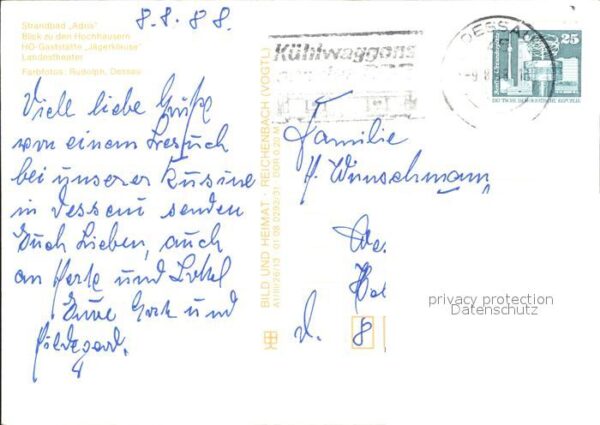 8.8.88.
Strandbad „Adria“
Blick zu den Hochhäusern
HO-Gaststätte „Jägerklause“
Landestheater
Farbfotos: Rudolph, Dessau
Viele liebe Grüße
von einem Besuch
bei unserer Kusine
in Dessau senden
Euch Lieben, auch
an und
Eure und
Hildegard.
BILD UND HEIMAT · REICHENBACH (VOGTL)
A1/III/26/13 01 08 0292/31 DDR 0,20 M
Kühlwaggons
DESSAU
25
DEUTSCHE DEMOKRATISCHE REPUBLIK
Familie
H. Wunschmann
8
privacy protection
Datenschutz